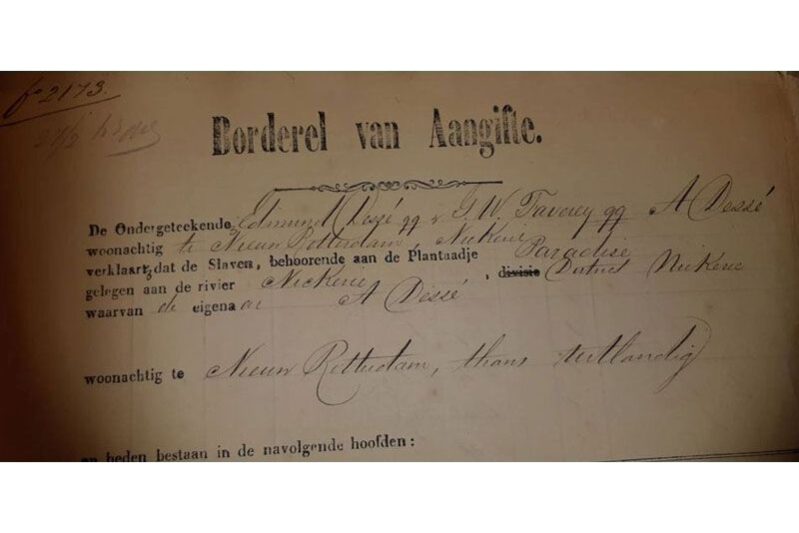 fo 2173.
Borderel van Aangifte.
De Ondergeteekende, Edmund Dessé qq & F. W. Taverey qq A Dessé
woonachtig te Nieuw Rotterdam, Nickerie
verklaart, dat de Slaven, behoorende aan de Plantaadje Paradise
gelegen aan de rivier Nickerie, divisie District Nickerie
waarvan de eigenaar A Dessé
woonachtig te Nieuw Rotterdam, thans uitlandig
op heden bestaan in de navolgende hoofden: